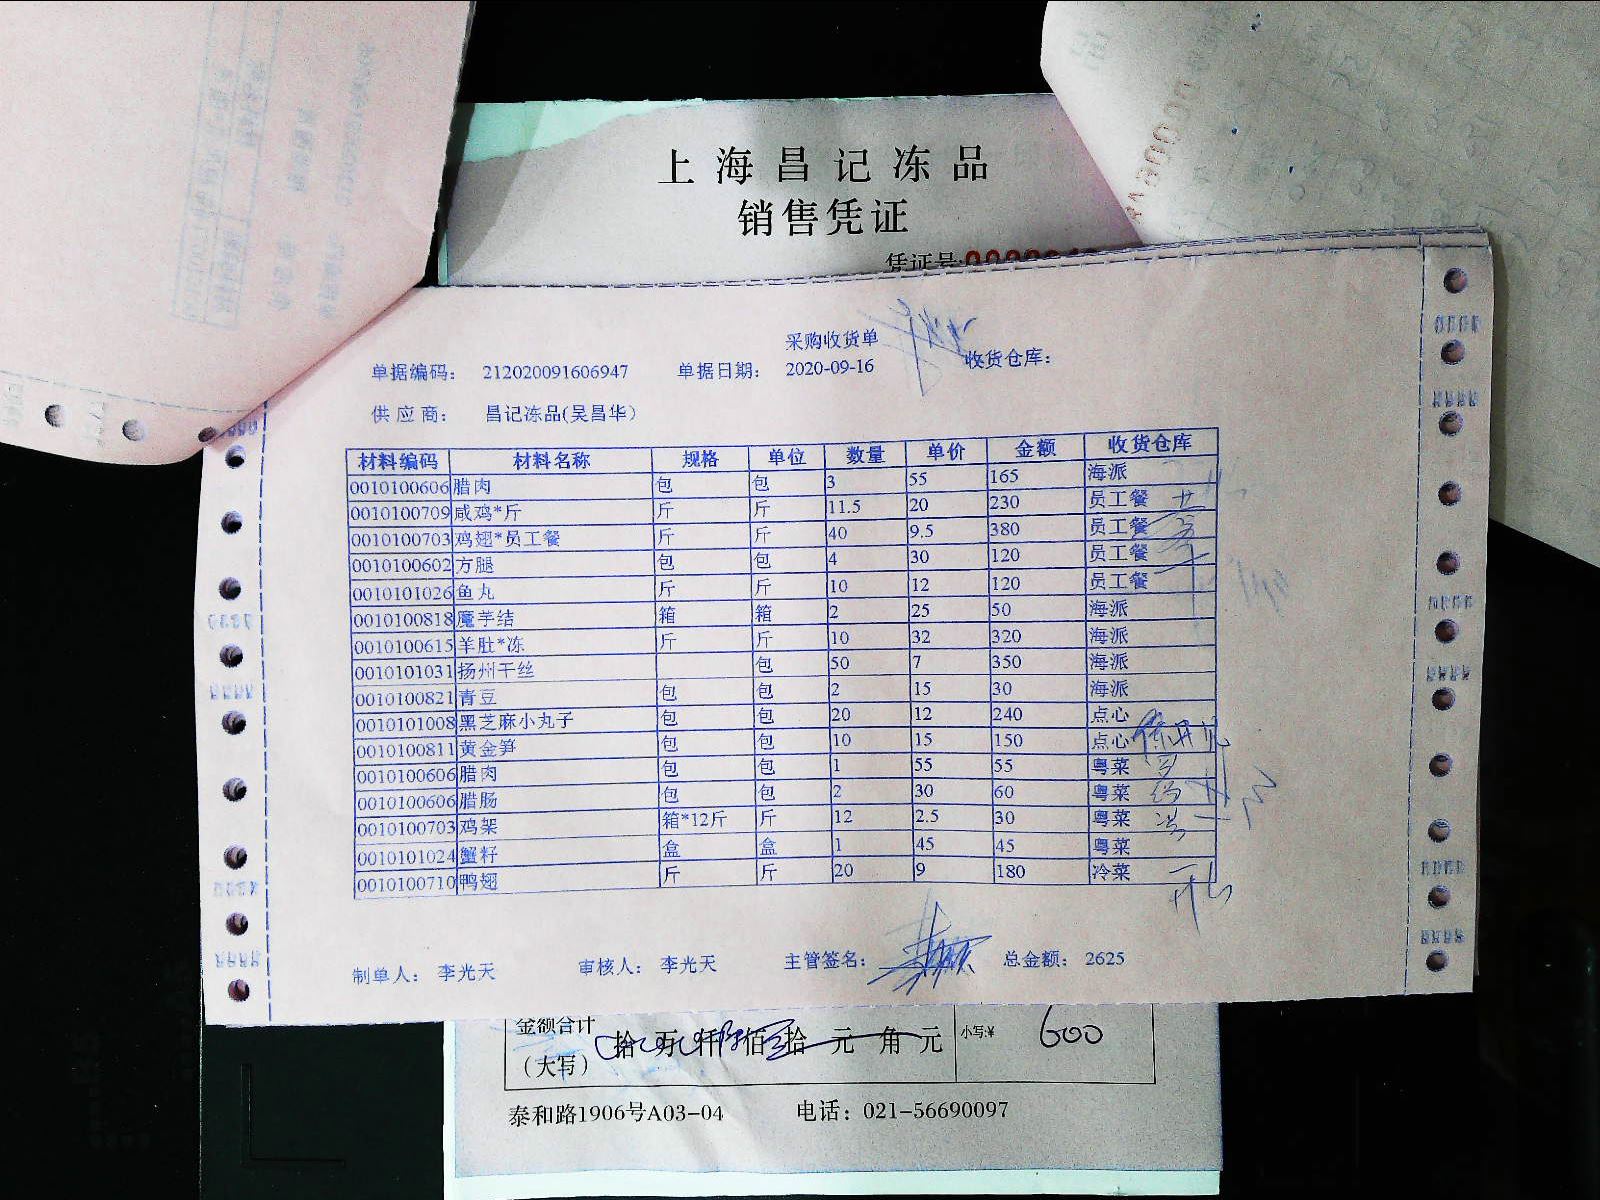 上海昌记冻品
销售凭证
凭证号:
采购收货单
单据编码： 212020091606947 单据日期： 2020-09-16 收货仓库：
供应商： 昌记冻品(吴昌华)
材料编码 材料名称 规格 单位 数量 单价 金额 收货仓库
0010100606 腊肉 包 包 3 55 165 海派
0010100709 咸鸡*斤 斤 斤 11.5 20 230 员工餐
0010100703 鸡翅*员工餐 斤 斤 40 9.5 380 员工餐
0010100602 方腿 包 包 4 30 120 员工餐
0010101026 鱼丸 斤 斤 10 12 120 员工餐
0010100818 魔芋结 箱 箱 2 25 50 海派
0010100615 羊肚*冻 斤 斤 10 32 320 海派
0010101031 扬州干丝 包 50 7 350 海派
0010100821 青豆 包 包 2 15 30 海派
0010101008 黑芝麻小丸子 包 包 20 12 240 点心
0010100811 黄金笋 包 包 10 15 150 点心
0010100606 腊肉 包 包 1 55 55 粤菜
0010100606 腊肠 包 包 2 30 60 粤菜
0010100703 鸡架 箱*12斤 斤 12 2.5 30 粤菜
0010101024 蟹籽 盒 盒 1 45 45 粤菜
0010100710 鸭翅 斤 斤 20 9 180 冷菜
制单人： 李光天 审核人： 李光天 主管签名： 总金额： 2625
金额合计
（大写） 拾 万 仟 佰 拾 元 角 元 小写:¥ 600
泰和路1906号A03-04 电话：021-56690097